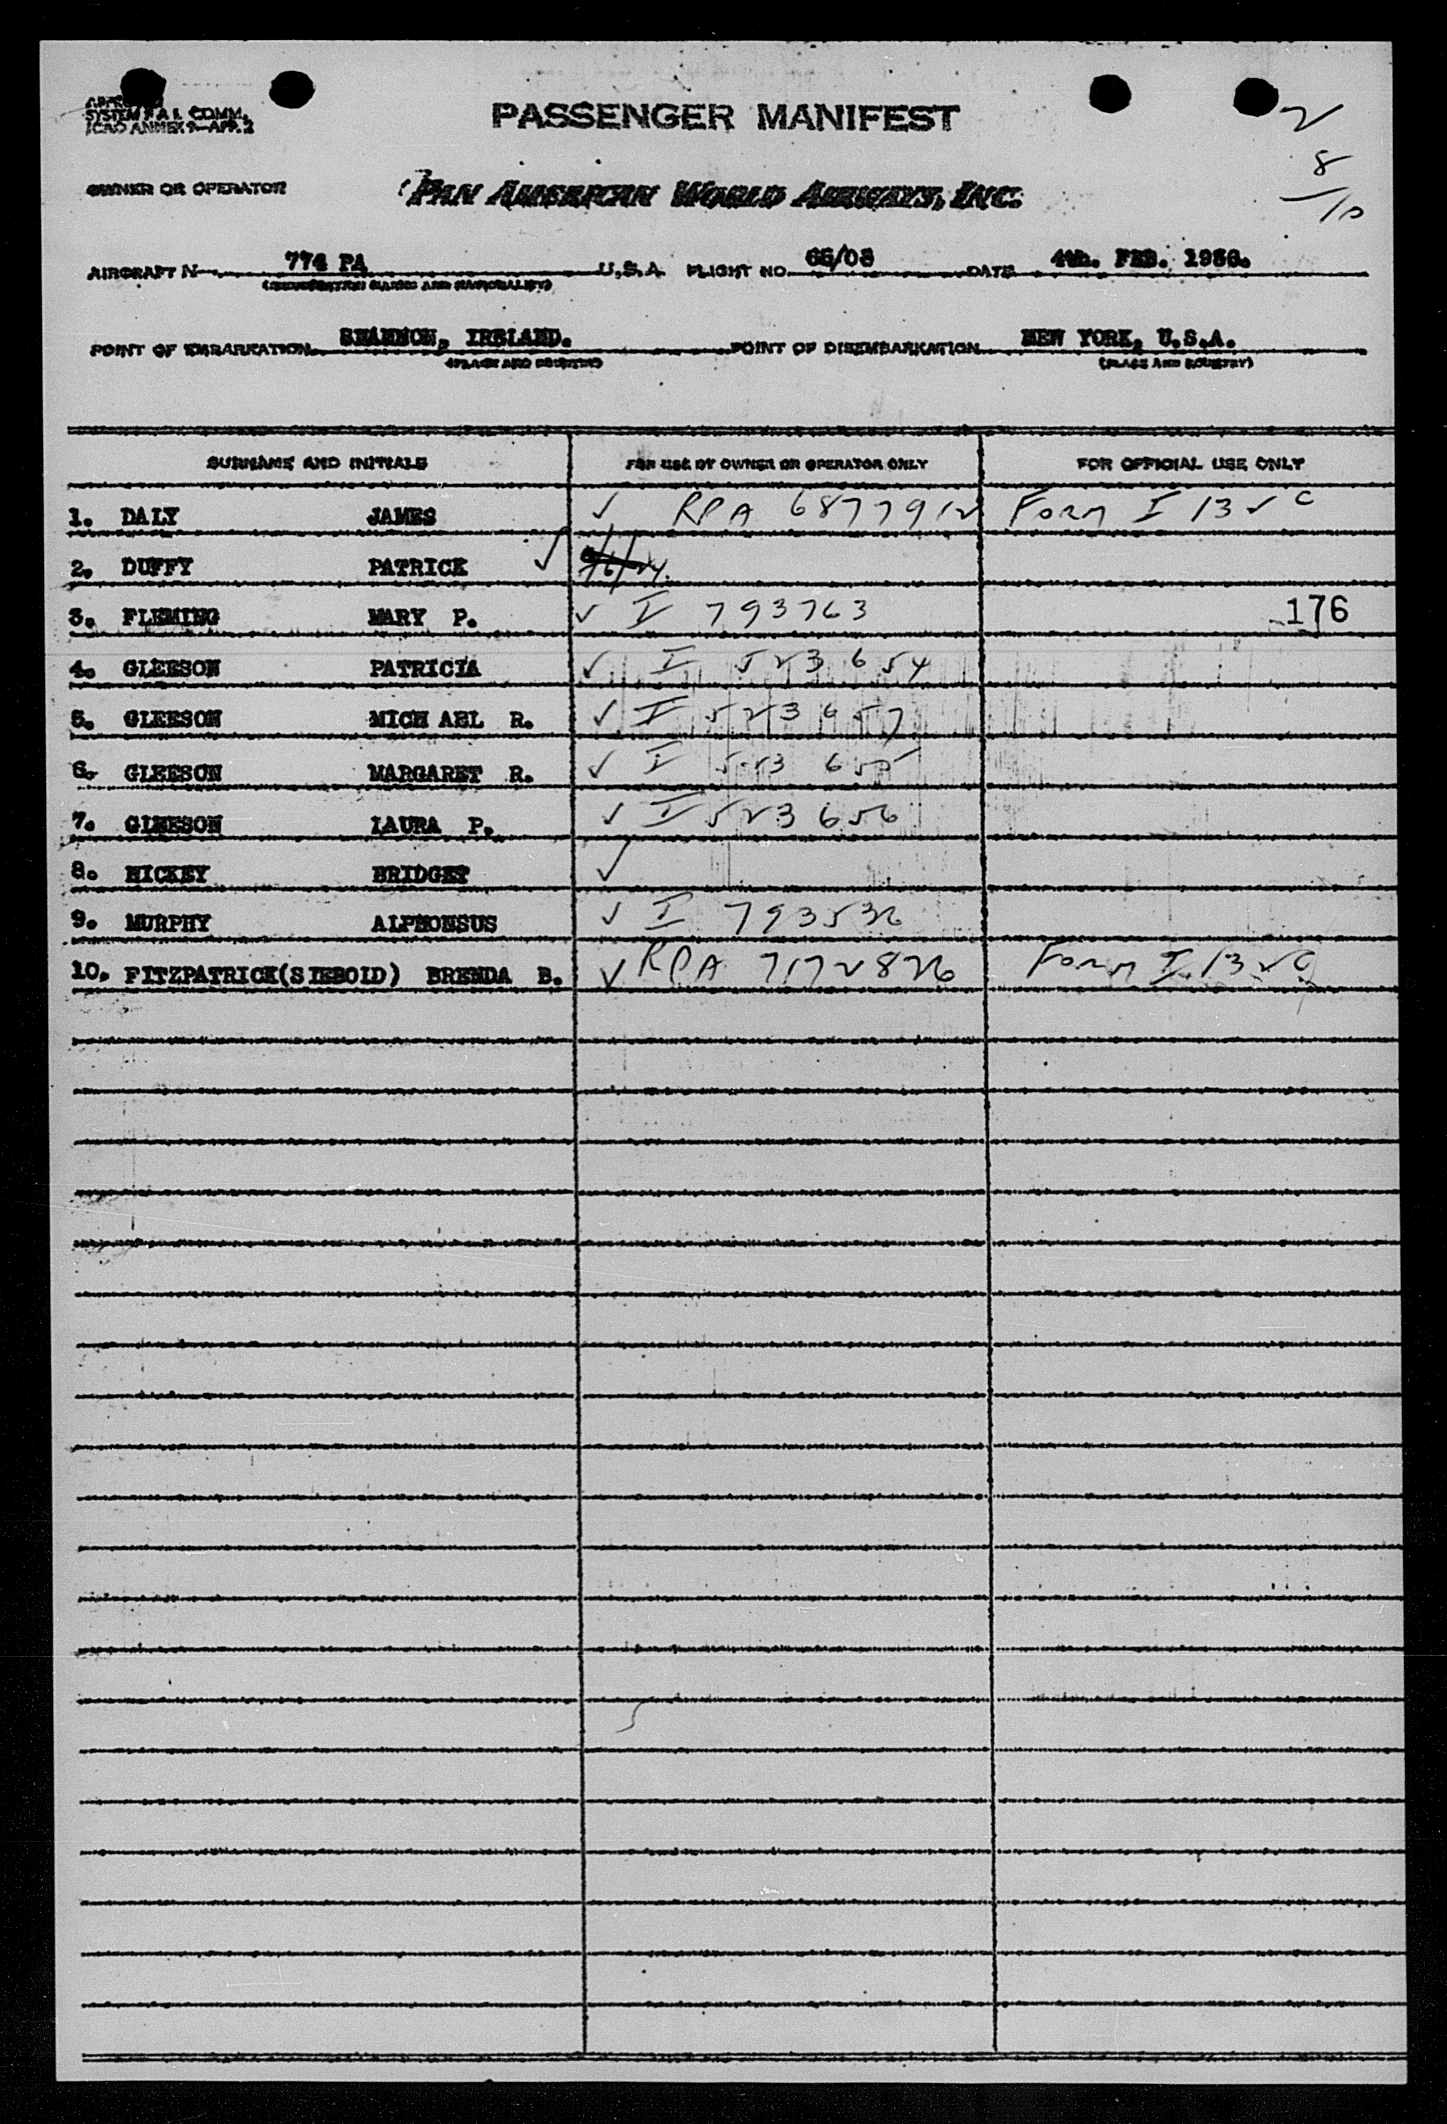 PASSENGER MANIFEST
2
8
/10
SYSTEM P A I. COMM.
ICAO ANNEX 9—APP. 2
OWNER OR OPERATOR PAN AMERICAN WORLD AIRWAYS, INC.
AIRCRAFT N 774 PA U.S.A. FLIGHT NO. DATE 4th. FEB. 1956.
(REGISTRATION MARKS AND NATIONALITY)
POINT OF EMBARKATION SHANNON, IRELAND. POINT OF DISEMBARKATION NEW YORK, U.S.A.
(PLACE AND COUNTRY) (PLACE AND COUNTRY)
SURNAME AND INITIALS FOR USE BY OWNER OR OPERATOR ONLY FOR OFFICIAL USE ONLY
1. DALY JAMES ✓ RPA 6877912 FORM I 132C
2. DUFFY PATRICK ✓
3. FLEMING MARY P. ✓ I 793763 176
4. GLEESON PATRICIA ✓ I 523654
5. GLEESON MICHAEL R. ✓ I 523657
6. GLEESON MARGARET R. ✓ I 523655
7. GLEESON LAURA P. ✓ I 523656
8. HICKEY BRIDGET ✓
9. MURPHY ALPHONSUS ✓ I 793532
10. FITZPATRICK(SIEBOLD) BRENDA B. ✓ RPA 7172826 FORM I 132C